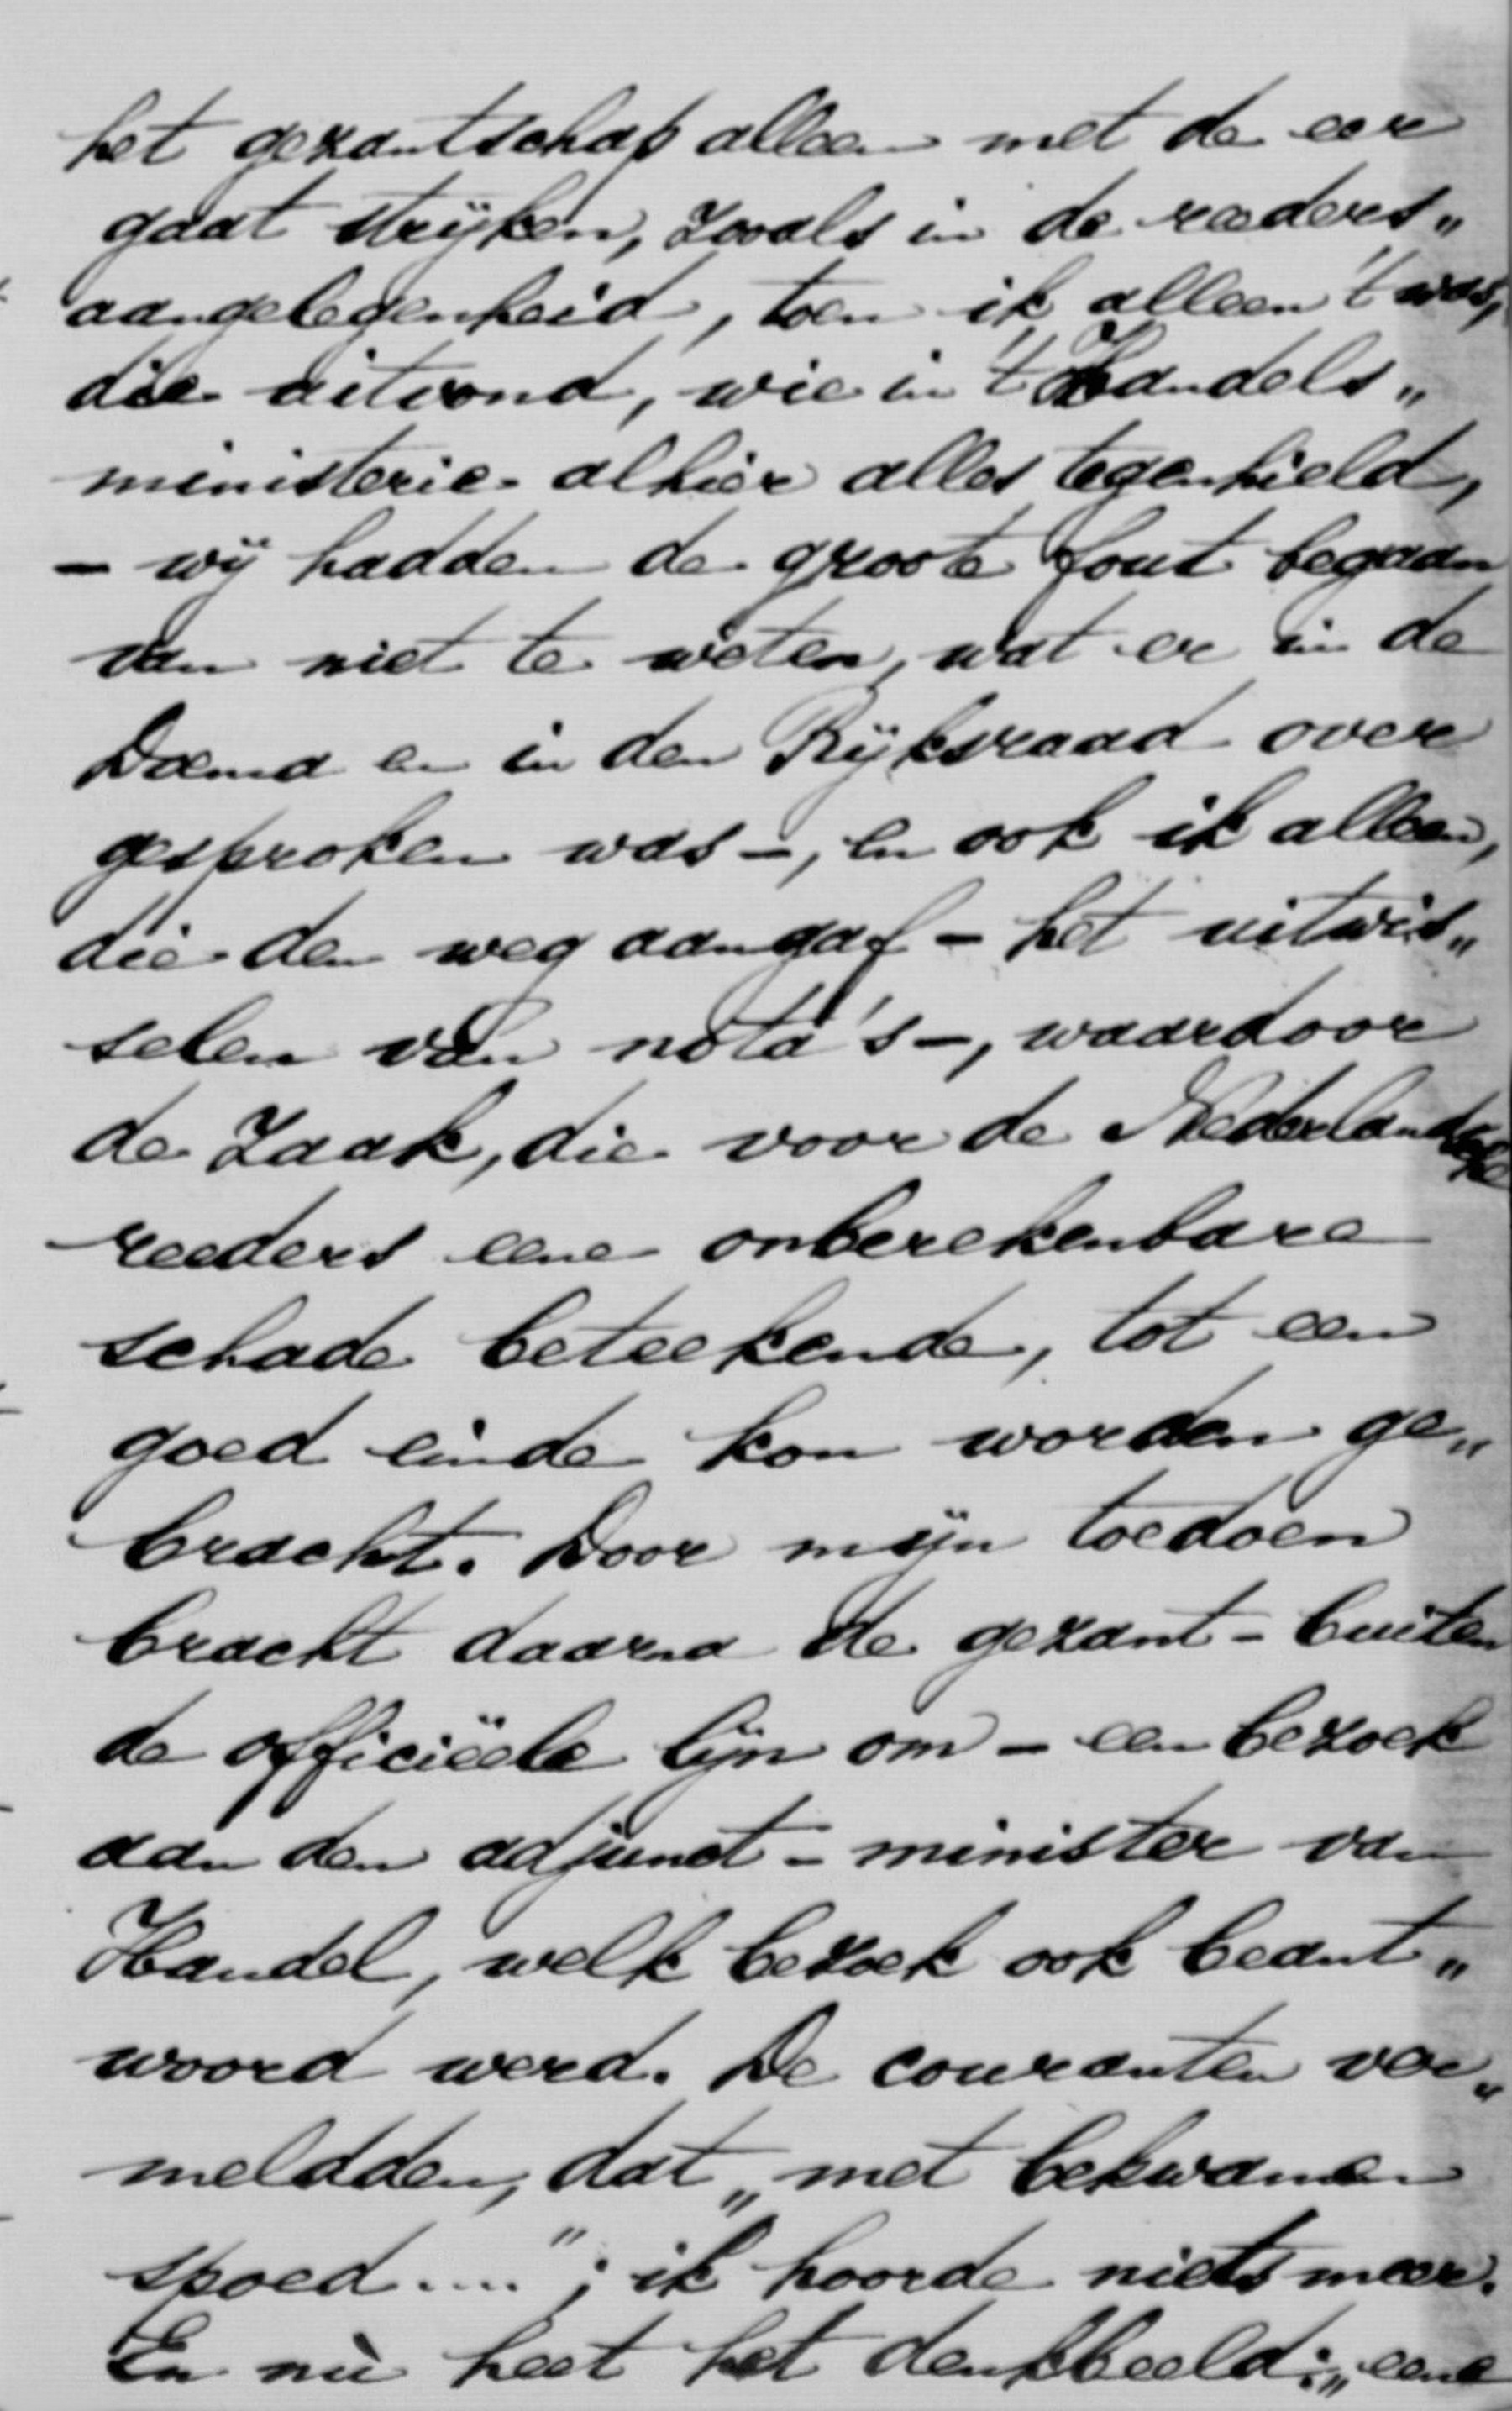 het gezantschap alleen met de eer
gaat strijken, zooals in de reeders„
aangelegenheid, toen ik alleen 't was,
die uitvond, wie in 't Handels„
ministerie alhier alles tegenhield,
– wij hadden de groote fout begaan
van niet te weten, wat er in de
Doema en in den Rijksraad over
gesproken was –, en ook ik alleen,
die den weg aangaf – het uitwis„
selen van nota's –, waardoor
de zaak, die voor de Nederlandsche
reeders eene onberekenbare
schade beteekende, tot een
goed einde kon worden ge„
bracht. Door mijn toedoen
bracht daarna de gezant – buiten
de officiëele lijn om – een bezoek
aan den adjunct-minister van
Handel, welk bezoek ook beant„
woord werd. De couranten ver„
meldden, dat „met bekwamen
spoed...."; ik hoorde niets meer.
En nù heet het denkbeeld: „eene